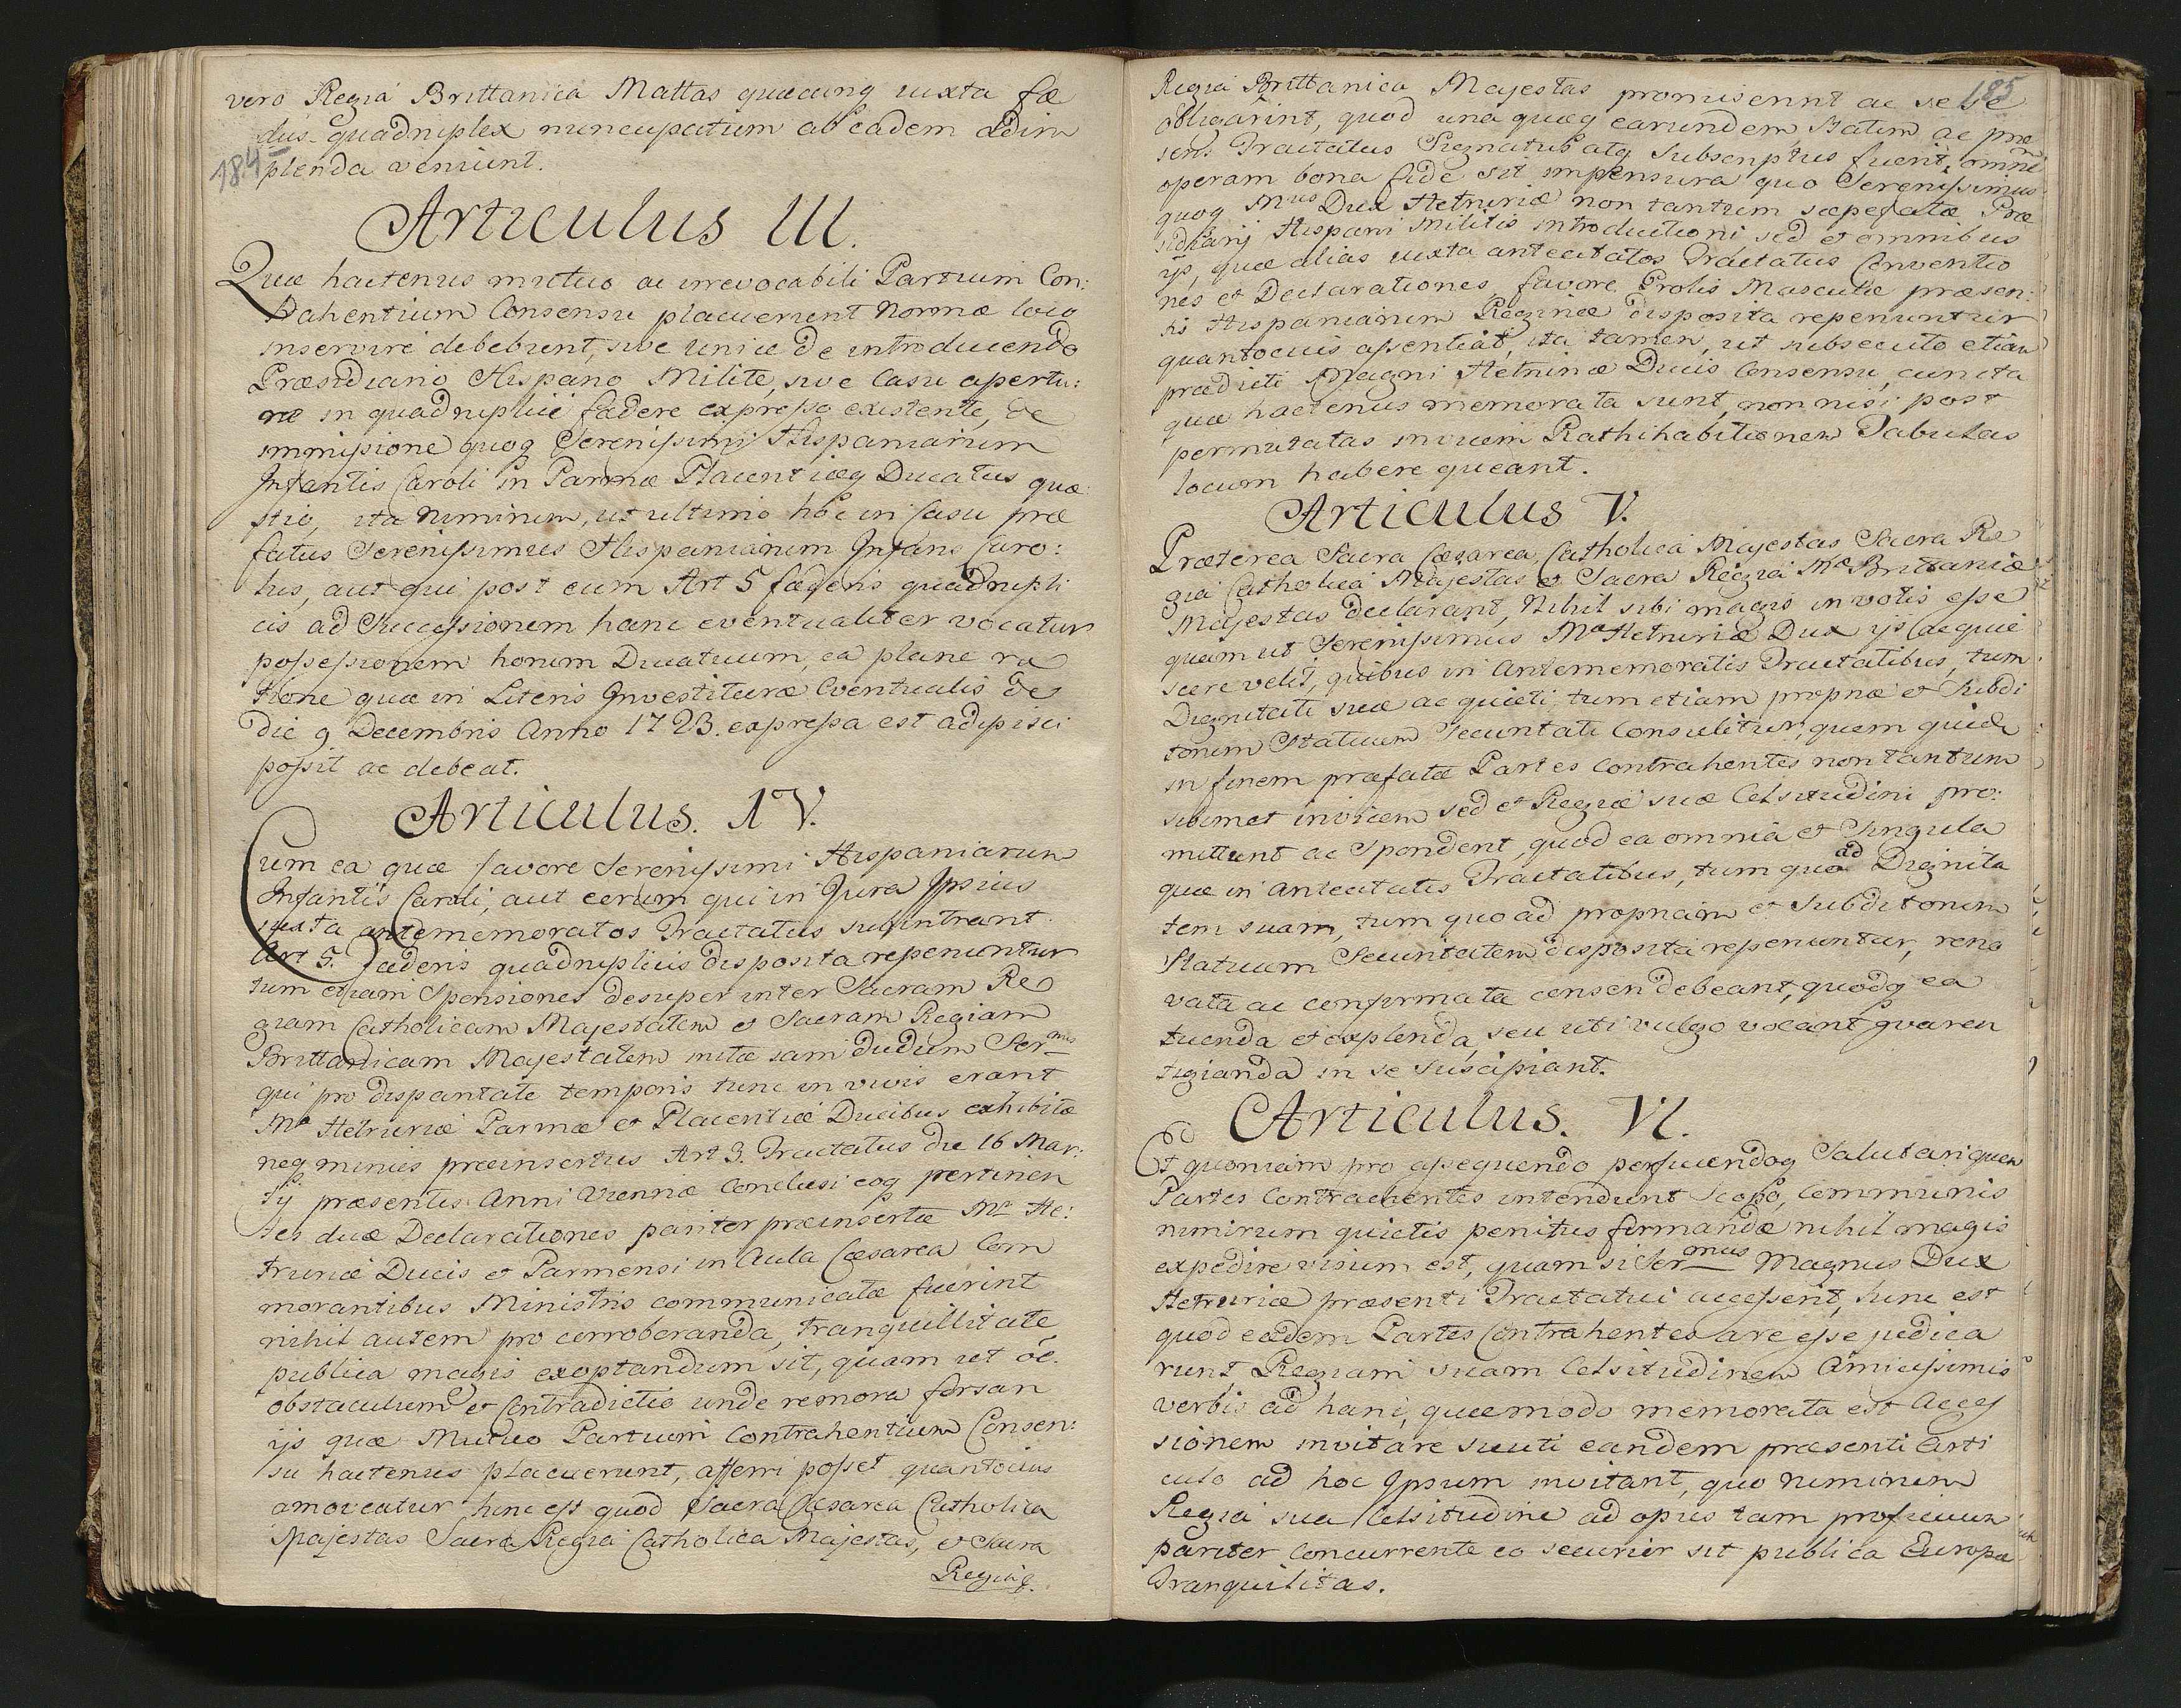 184
vero Regia Brittanica Mattas quæcunq iuxta fæ
dus quadruplex nuncupatum ab eadem adim
plenda veniunt.
Articulus III.
Quæ hactenus mutuo ac irrevocabili Partium Con:
trahentium Consensu placuerunt Normæ loco
inservire debebunt, sive unice de introducendo
Præsidiario Hispano Milite, sive Casu apertu:
ræ in quadruplici fædere expresso existente, de
immissione quoq Serenissimi Hispaniarum
Infantis Caroli in Parmæ Placentiæq Ducatus quæ:
stio, ita nimirum, ut ultimo hoc in Casu præ
fatus Serenissimus Hispaniarum Infans Caro:
lus, aut qui post eum Art 5 fæderis quadrupli
cis ad Successionem hanc eventualiter vocatur
possessionem horum Ducatuum, ea plane ra
tione quæ in Literis Investituræ Eventualis de
die 9 Decembris Anno 1723. expressa est adipisci
possit ac debeat.
Articulus. IV.
Cum ea quæ favore Serenissimi Hispaniarum
Infantis Caroli, aut eorum qui in Jura Ipsius
iuxta antememoratos Tractatus subintrant
Art 5. fæderis quadruplicis disposita reperiuntur
tum etiam Sponsiones desuper inter Sacram Re
giam Catholicam Majestatem et Sacram Regiam
Brittanicam Majestatem initæ iam dudum Ser mis
qui pro disparitate temporis tunc in vivis erant
Mæ Hetruriæ Parmæ et Placentiæ Ducibus exhibitæ
neq minus præinsertus Art 3. Tractatus die 16 Mar:
tij præsentis Anni Viennæ Conclusi eoq pertinen
tes duæ Declarationes pariter præinsertæ Mi He:
truriæ Ducis et Parmensi in Aula Cæsarea Com
morantibus Ministris communicatæ fuerint
nihil autem pro corroboranda, tranquillitate
publica magis exoptandum sit, quam ut oē.
obstaculum et Contradictio unde remora forsan
ijs quæ Mutuo Partium Contrahentium Consen:
su hactenus placuerunt, afferri posset quantocius
amoveatur hinc est quod Sacra Cæsarea Catholica
Majestas Sacra Regia Catholica Majestas, et Sacra
Regia
185
Regia Brittanica Majestas promiserint ac sese
obligarint, quod una quæq earundem statim ac præ
sens Tractatus Signatus atq Subscriptus fuerit, omnem
operam bona fide sit impensura quo Serenissimus
quoq Mnus Dux Hetruriæ non tantum sæpefatæ Præ
sidiarij Hispani Militis introductioni sed et omnibus
ijs, quæ alias iuxta antecitatos Tractatus Conventio
nes et Declarationes favore Prolis Masculæ præsen:
tis Hispaniarum Reginæ disposita reperiuntur
quantocius assentiat, ita tamen, ut subsecuto etiam
prædicti Magni Hetruriæ Ducis Consensu, cuncta
quæ hactenus memorata sunt, non nisi post
permutatas invicem Rathihabitionem Tabulas
locum habere queant.
Articulus V.
Præterea Sacra Cæsarea, Catholica Majestas Sacra Re
gia Catholica Majestas et Sacra Regia Mæ Brittaniæ
Majestas declarant, Nihil sibi magis in votis esse
quam ut Serenissimus Ms Hetruriæ Dux ijs acquie
scere velit, quibus in Antememoratis Tractatibus, tum
Dignitati suæ ac quieti, tum etiam propriæ et Subdi
torum Statuum Securitati Consulitur, quem quidem
in finem præfatæ Partes Contrahentes non tantum
sibimet invicem sed et Regiæ suæ Celsitudini pro:
mittunt ac Spondent, quod ea omnia et Singula
quæ in antecitatis Tractatibus, tum quo ad Dignita
tem suam, tum quo ad propriam et Subditorum
Statuum Securitatem disposita reperiuntur, reno
vata ac confirmata censeri debeant, quodq ea
tuenda et explenda, seu uti vulgo vocant gvaren
tigianda in se suscipiant.
Articulus. VI.
Et quoniam pro assequendo perficiendoq Salutari quem
Partes Contrahentes intendunt Scopo, Communis
nimirum quietis penitus firmandæ nihil magis
expedire visum est, quam si Ser mus Magnus Dux
Hetruriæ præsenti Tractatui accesserit, hinc est
quod eædem Partes Contrahentes a re esse judica
runt, Regiam suam Celsitudinem Amicissimis
verbis ad hanc, quæ modo memorata est Acces
sionem invitare sicuti eandem præsenti Arti
culo ad hoc Ipsum invitant, quo nimirum
Regia sua Celsitudine ad opus tam proficuum
pariter concurrente eo securior sit publica Europæ
Tranquilitas.